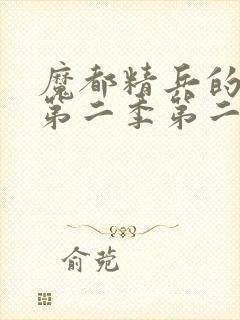 魔都精兵的
第二季第二
俞菀